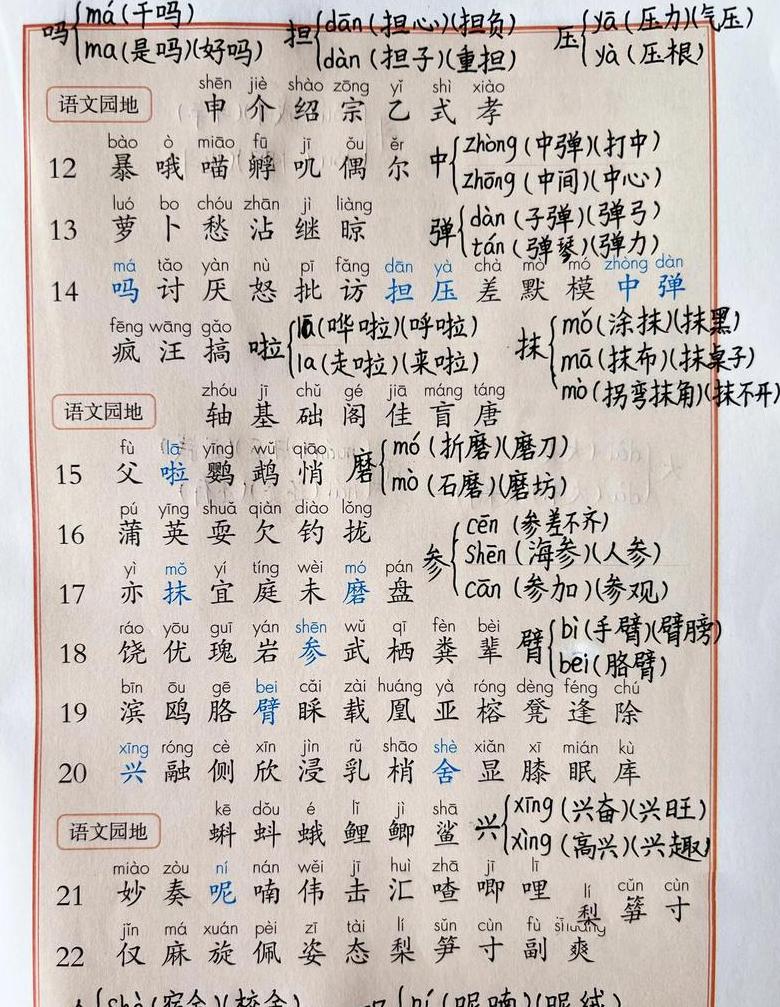 吗{má(干吗) 担{dān(担心)(担负) 压{yā(压力)(气压)
ma(是吗)(好吗) dàn(担子)(重担) yà(压根)
shēn jiè shào zōng yǐ shì xiào
语文园地 申 介 绍 宗 乙 式 孝
bào ò miāo fū jī ǒu ěr
12 暴 哦 喵 孵 叽 偶 尔 中{zhòng(中弹)(打中)
zhōng(中间)(中心)
luó bo chóu zhān jì liàng
13 萝 卜 愁 沾 继 晾 弹{dàn(子弹)(弹弓)
tán(弹琴)(弹力)
má tǎo yàn nù pī fǎng dān yà chà mò mó zhòng dàn
14 吗 讨 厌 怒 批 访 担 压 差 默 模 中 弹
fēng wāng gǎo
疯 汪 搞 啦{lā(哗啦)(呼啦) 抹{mǒ(涂抹)(抹黑)
la(走啦)(来啦) mā(抹布)(抹桌子)
mò(拐弯抹角)(抹不开)
zhóu jī chǔ gé jiā máng táng
语文园地 轴 基 础 阁 佳 盲 唐
fù lā yīng wǔ qiāo
15 父 啦 鹦 鹉 悄 磨{mó(折磨)(磨刀)
mò(石磨)(磨坊)
pú yīng shuǎ qiàn diào lǒng
16 蒲 英 耍 欠 钓 拢 参{cēn(参差不齐)
shēn(海参)(人参)
cān(参加)(参观)
yì mǒ yí tíng wèi mó pán
17 亦 抹 宜 庭 未 磨 盘
ráo yōu guī yán shēn wǔ qī fèn bèi
18 饶 优 瑰 岩 参 武 栖 粪 辈 臂{bì(手臂)(臂膀)
bei(胳臂)
bīn ōu gē bei cǎi zài huáng yà róng dèng féng chú
19 滨 鸥 胳 臂 睬 载 凰 亚 榕 凳 逢 除
xīng róng cè xīn jìn rǔ shāo shè xiǎn xī mián kù
20 兴 融 侧 欣 浸 乳 梢 舍 显 膝 眠 库
kē dǒu é lǐ jì shā
语文园地 蝌 蚪 蛾 鲤 鲫 鲨 兴{xīng(兴奋)(兴旺)
xìng(高兴)(兴趣)
miào zòu ní nán wěi jī huì zhā jī lī
21 妙 奏 呢 喃 伟 击 汇 喳 唧 哩
lí cǔn cùn
梨 笋 寸
jǐn má xuán pèi zī tài lí sǔn cùn fù
22 仅 麻 旋 佩 姿 态 梨 笋 寸 副 爽
{shè(宿舍)(校舍) {ní(呢喃)(呢绒)